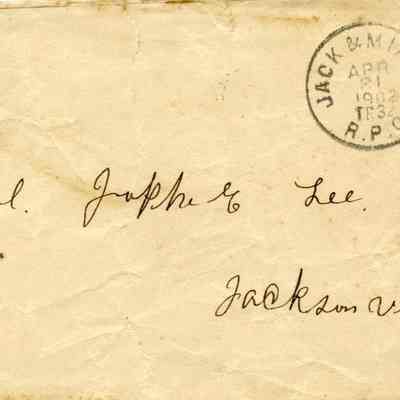 JACK & MI
APR
21
1902
TR 32
R.P.O
l. Jophe E Lee.
Jacksonv